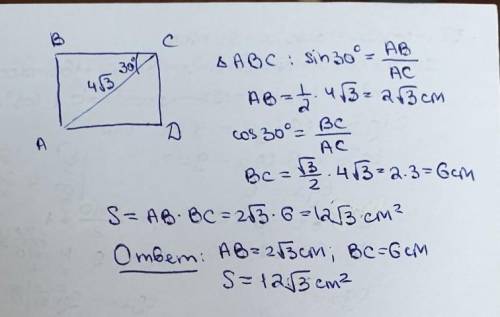 B C
30°
4√3
A D
△ABC: sin30° = AB/AC
AB = 1/2 · 4√3 = 2√3 см
cos30° = BC/AC
BC = √3/2 · 4√3 = 2·3 = 6см
S = AB · BC = 2√3 · 6 = 12√3 см²
Ответ: AB = 2√3 см; BC = 6см
S = 12√3 см²